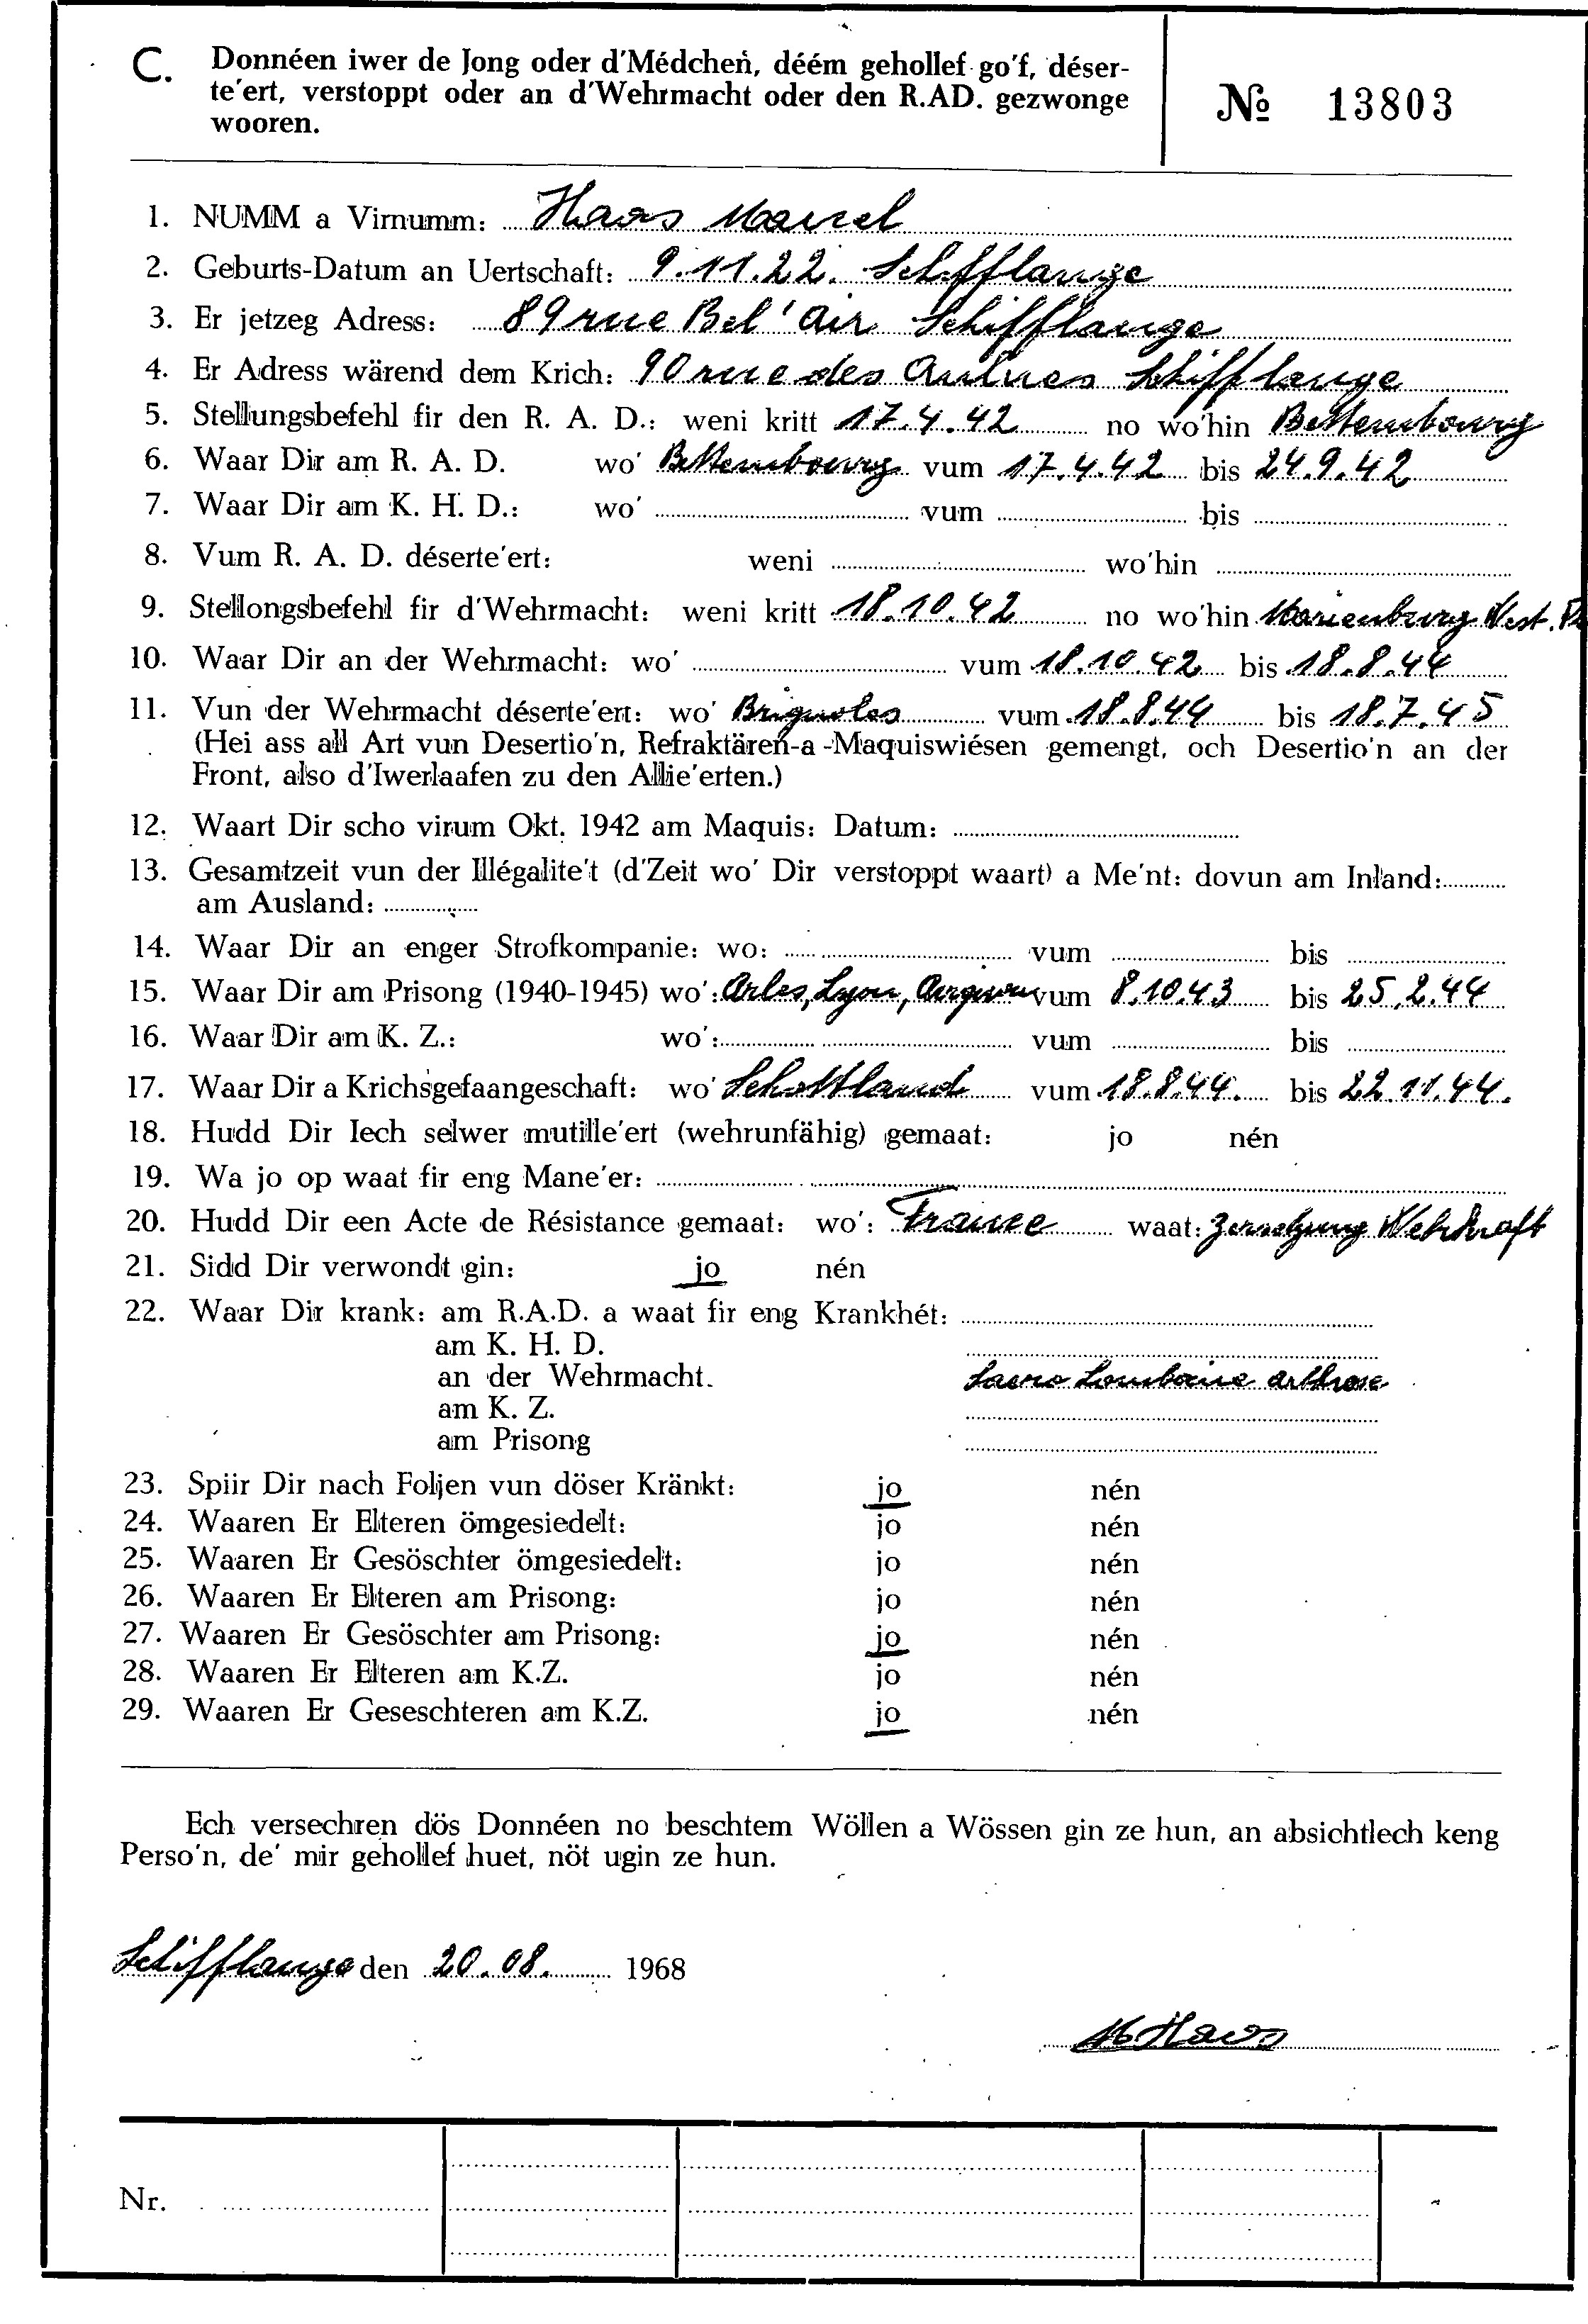 C. Donnéen iwer de Jong oder d'Médchen, déém gehollef go'f, déser-
te'ert, verstoppt oder an d'Wehrmacht oder den R.AD. gezwonge
wooren.
№ 13803
1. NUMM a Virnumm: Haas Marcel
2. Geburts-Datum an Uertschaft: 9.11.22. Schifflange
3. Er jetzeg Adress: 89 rue Bel'air Schifflange
4. Er Adress wärend dem Krich: 90 rue des Aulnes Schifflange
5. Stellungsbefehl fir den R. A. D.: weni kritt 17.4.42 no wo'hin Bettembourg
6. Waar Dir am R. A. D. wo' Bettembourg vum 17.4.42 bis 24.9.42
7. Waar Dir am K. H. D.: wo' vum bis
8. Vum R. A. D. déserte'ert: weni wo'hin
9. Stellongsbefehl fir d'Wehrmacht: weni kritt 18.10.42 no wo'hin Marienburg West.
10. Waar Dir an der Wehrmacht: wo' vum 18.10.42 bis 18.8.44
11. Vun der Wehrmacht déserte'ert: wo' Brignoles vum 18.8.44 bis 18.7.45
(Hei ass all Art vun Desertio'n, Refraktären-a-Maquiswiésen gemengt, och Desertio'n an der
Front, also d'Iwerlaafen zu den Allie'erten.)
12. Waart Dir scho virum Okt. 1942 am Maquis: Datum:
13. Gesamtzeit vun der Illégalite't (d'Zeit wo' Dir verstoppt waart) a Me'nt: dovun am Inland:
am Ausland:
14. Waar Dir an enger Strofkompanie: wo: vum bis
15. Waar Dir am Prisong (1940-1945) wo': Arles, Lyon, vum 8.10.43 bis 25.2.44
16. Waar Dir am K. Z.: wo': vum bis
17. Waar Dir a Krichsgefaangeschaft: wo' Schottland vum 18.8.44. bis 22.11.44.
18. Hudd Dir Iech selwer mutille'ert (wehrunfähig) gemaat: jo nén
19. Wa jo op waat fir eng Mane'er:
20. Hudd Dir een Acte de Résistance gemaat: wo': France waat: Zersetzung Wehrkraft
21. Sidd Dir verwondt gin: jo nén
22. Waar Dir krank: am R.A.D. a waat fir eng Krankhét:
am K. H. D.
an der Wehrmacht. Sacro Lombaire arthrose
am K. Z.
am Prisong
23. Spiir Dir nach Foljen vun döser Kränkt: jo nén
24. Waaren Er Elteren ömgesiedelt: jo nén
25. Waaren Er Gesöschter ömgesiedelt: jo nén
26. Waaren Er Elteren am Prisong: jo nén
27. Waaren Er Gesöschter am Prisong: jo nén
28. Waaren Er Elteren am K.Z. jo nén
29. Waaren Er Geseschteren am K.Z. jo nén
Ech versechren dös Donnéen no beschtem Wöllen a Wössen gin ze hun, an absichtlech keng
Perso'n, de' mir gehollef huet, nöt ugin ze hun.
Schifflange den 20.08. 1968
M Haas
Nr.